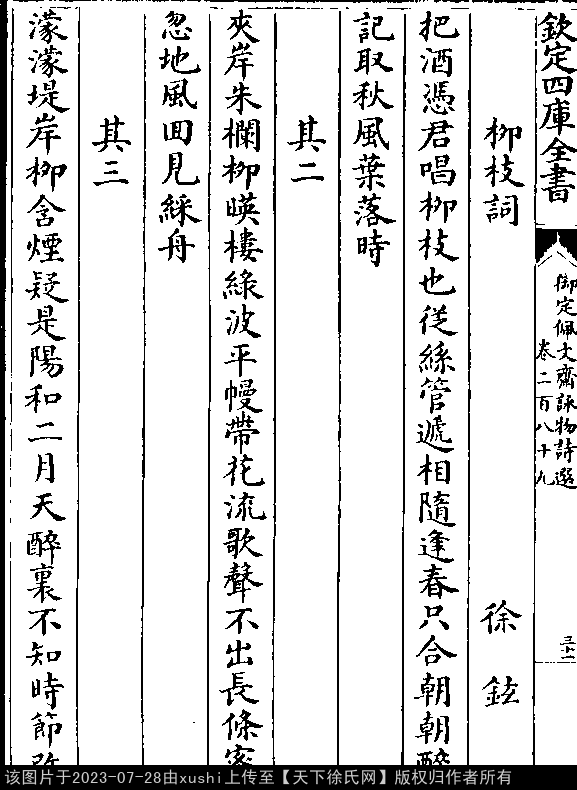 欽定四庫全書
御定佩文齋詠物詩選
卷二百八十九
三十一
柳枝詞 徐鉉
把酒憑君唱柳枝也從絲管遞相隨逢春只合朝朝醉
記取秋風葉落時
其二
夾岸朱欄柳暎樓綠波平幔帶花流歌聲不出長條密
忽地風囬見綵舟
其三
濛濛堤岸柳含煙疑是陽和二月天醉裏不知時節
该图片于2023-07-28由xushi上传至【天下徐氏网】版权归作者所有